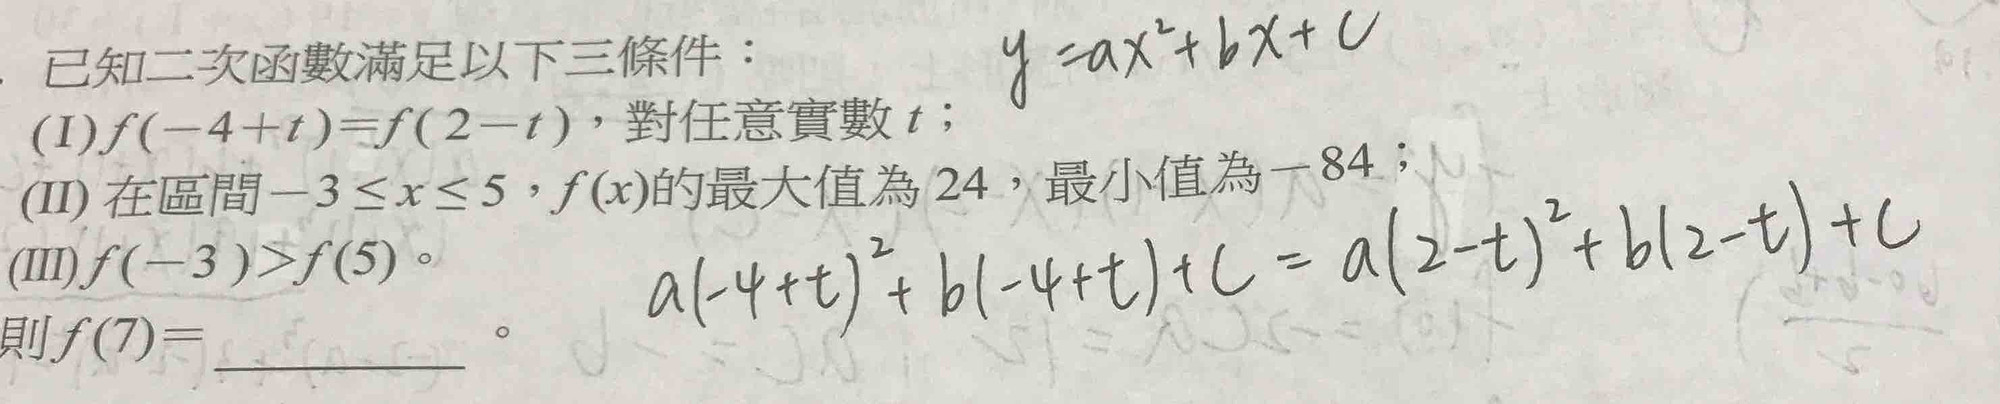 已知二次函數滿足以下三條件：
y=ax²+bx+c
(I) f(−4+t)=f(2−t)，對任意實數 t；
(II) 在區間−3≤x≤5，f(x)的最大值為 24，最小值為−84；
(III) f(−3)>f(5)。
a(-4+t)²+b(-4+t)+c=a(2-t)²+b(2-t)+c
則 f(7)=________。